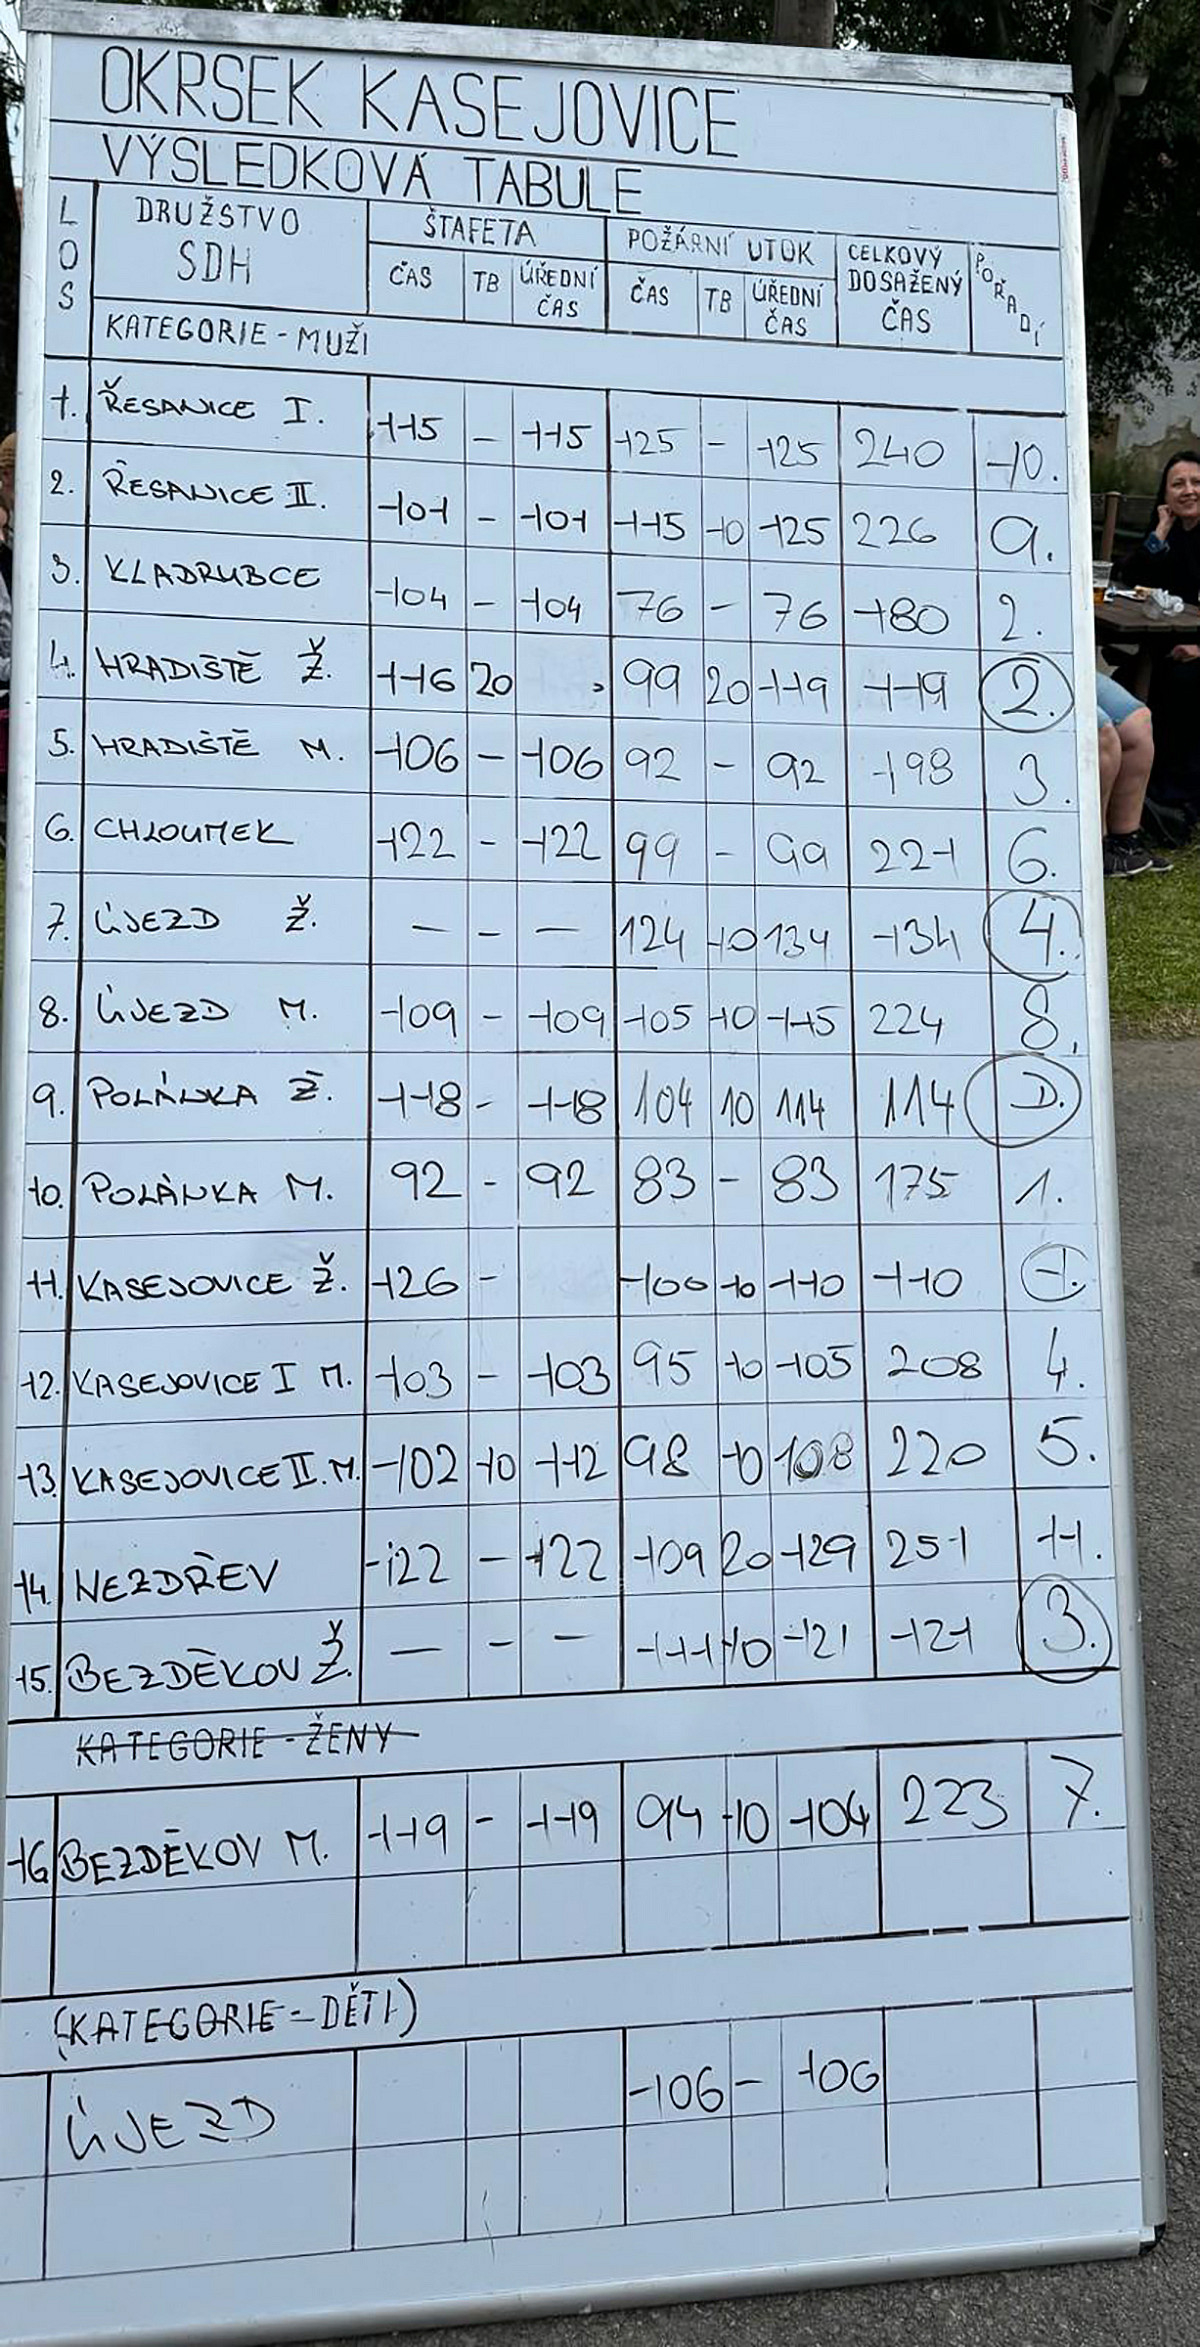 OKRSEK KASEJOVICE
VÝSLEDKOVÁ TABULE
LOS DRUŽSTVO SDH ŠTAFETA POŽÁRNÍ UTOK CELKOVÝ DOSAŽENÝ ČAS POŘADÍ
ČAS TB ÚŘEDNÍ ČAS ČAS TB ÚŘEDNÍ ČAS
KATEGORIE - MUŽI
1. ŘESANICE I. 115 - 115 125 - 125 240 10.
2. ŘESANICE II. 101 - 101 115 10 125 226 9.
3. KLADRUBCE 104 - 104 76 - 76 180 2.
4. HRADIŠTĚ Ž. 116 20 99 20 119 119 2.
5. HRADIŠTĚ M. 106 - 106 92 - 92 198 3.
6. CHLOUMEK 122 - 122 99 - 99 221 6.
7. ÚJEZD Ž. - - - 124 10 134 134 4.
8. ÚJEZD M. 109 - 109 105 10 115 224 8.
9. POLÁNKA Ž. 118 - 118 104 10 114 114 D.
10. POLÁNKA M. 92 - 92 83 - 83 175 1.
11. KASEJOVICE Ž. 126 - 100 10 110 110 1.
12. KASEJOVICE I M. 103 - 103 95 10 105 208 4.
13. KASEJOVICE II. M. 102 10 112 98 10 108 220 5.
14. NEZDŘEV 122 - 122 109 20 129 251 11.
15. BEZDĚKOV Ž. - - - 111 10 121 121 3.
KATEGORIE - ŽENY
16 BEZDĚKOV M. 119 - 119 94 10 104 223 7.
(KATEGORIE - DĚTI)
ÚJEZD 106 - 106